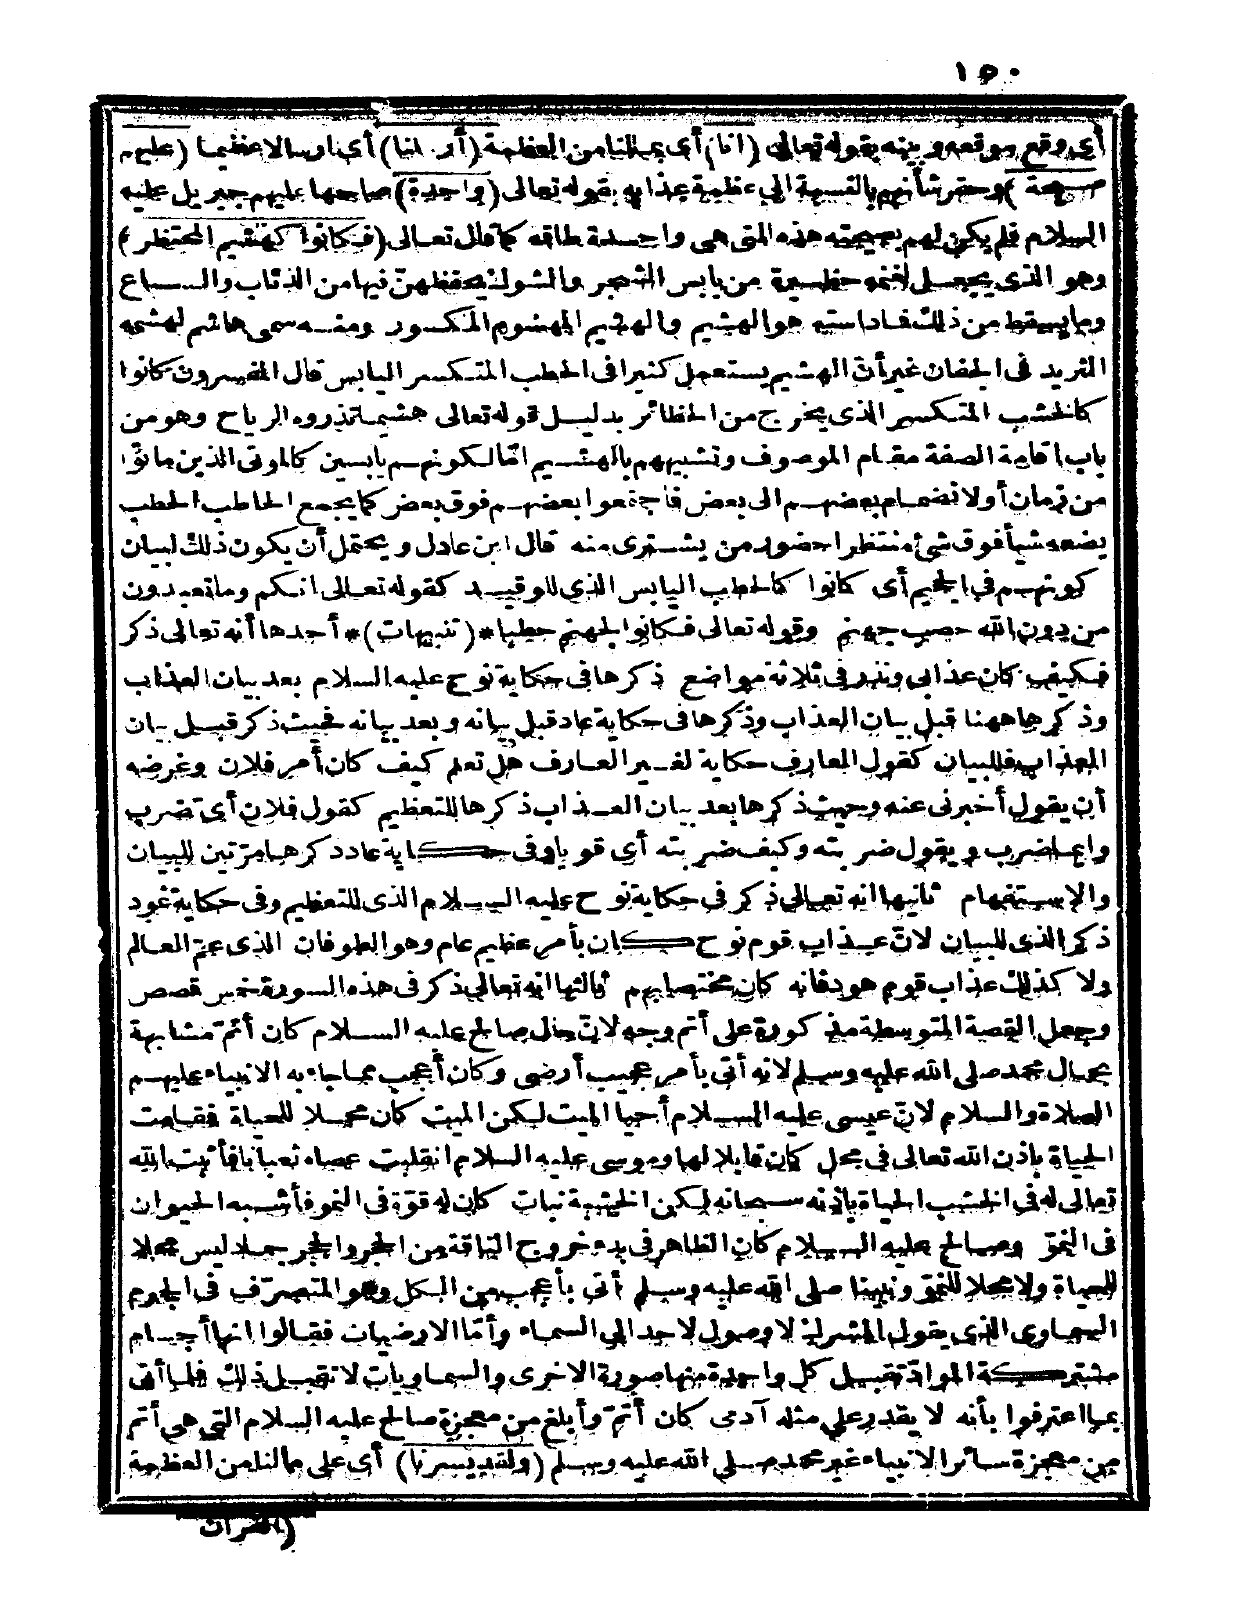 ١٥٠
أى وقع موقعه وبينه بقوله تعالى (انا) أى بمالنا من العظمة (أرسلنا) أى ارسالا عظيما (عليهم
صيحة) وحقر شأنهم بالنسبة الى عظمة عذابه بقوله تعالى (واحدة) صاحها عليهم جبريل عليه
السلام فلم يكن لهم بصيحته هذه التى هى واحدة طاقه كما قال تعالى (فكانوا كهشيم المحتظر)
وهو الذى يجعل لغنمه حظيرة من يابس الشجر والشوك يحفظهنّ فيها من الذئاب والسباع
وما يسقط من ذلك فداسته هو الهشيم والهشيم المهشوم المكسور ومنه سمى هاشم لهشمه
الثريد فى الجفان غير أنّ الهشيم يستعمل كثيرا فى الحطب المتكسر اليابس قال المفسرون كانوا
كالخشب المتكسر الذى يخرج من الحظائر بدليل قوله تعالى هشيما تذروه الرياح وهو من
باب اقامة الصفة مقام الموصوف وتشبيههم بالهشيم امّا لكونهم يابسين كالموتى الذين ماتوا
من زمان أولانضمام بعضهم الى بعض فاجتمعوا بعضهم فوق بعض كما يجمع الحاطب الحطب
يضعه شيأ فوق شئ منتظرا حضور من يشترى منه قال ابن عادل ويحتمل أن يكون ذلك لبيان
كونهم فى الجحيم أى كانوا كالحطب اليابس الذى للوقيد كقوله تعالى انكم وما تعبدون
من دون الله حصب جهنم وقوله تعالى فكانوا لجهنم حطبا * (تنبيهات) * أحدها أنه تعالى ذكر
فكيف كان عذابى ونذر فى ثلاثة مواضع ذكرها فى حكاية نوح عليه السلام بعد بيان العذاب
وذكرها ههنا قبل بيان العذاب وذكرها فى حكاية عاد قبل بيانه وبعد بيانه فحيث ذكر قبل بيان
العذاب فللبيان كقول العارف حكاية لغير العارف هل تعلم كيف كان أمر فلان وغرضه
أن يقول أخبرنى عنه وحيث ذكرها بعد بيان العذاب ذكرها للتعظيم كقول فلان أى ضرب
وايما ضرب ويقول ضربته وكيف ضربته أى قويا وفى حكاية عاد ذكرها مرّتين للبيان
والاستفهام ثانيها انه تعالى ذكر فى حكاية نوح عليه السلام الذى للتعظيم وفى حكاية ثمود
ذكر الذى للبيان لانّ عذاب قوم نوح كان بأمر عظيم عام وهو الطوفان الذى عمّ العالم
ولا كذلك عذاب قوم هود فانه كان مختصا بهم ثالثها انه تعالى ذكر فى هذه السورة خمس قصص
وجعل القصة المتوسطة مذكورة على أتم وجه لانّ حال صالح عليه السلام كان أتمّ مشابهة
بحال محمد صلى الله عليه وسلم لانه أتى بأمر عجيب أرضى وكان أعجب مما جاء به الانبياء عليهم
الصلاة والسلام لانّ عيسى عليه السلام أحيا الميت لكن الميت كان محلا للحياة فقامت
الحياة باذن الله تعالى فى محل كان قابلا لها وموسى عليه السلام انقلبت عصاه ثعبانا فأثبت الله
تعالى له فى الخشب الحياة باذنه سبحانه لكن الخشبة نبات كان له قوّة فى النمو فأشبه الحيوان
فى النموّ وصالح عليه السلام كان الظاهر فى يده خروج الناقة من الحجر والحجر جماد ليس محلا
للحياة ولا محلا للنموّ ونبينا صلى الله عليه وسلم أتى بأعجب من الكل وهو المتصرّف فى الجرم
السماوى الذى يقول المشرك لا وصول لاحد الى السماء وأمّا الارضيات فقالوا انها أجسام
مشتركة الموادّ تقبل كل واحدة منها صورة الاخرى والسماويات لا تقبل ذلك فلما أتى
بما اعترفوا بأنه لا يقدر على مثله آدمى كان أتمّ وأبلغ من معجزة صالح عليه السلام التى هى أتم
من معجزة سائر الانبياء غير محمد صلى الله عليه وسلم (ولقد يسرنا) أى على مالنا من العظمة
(القرآن